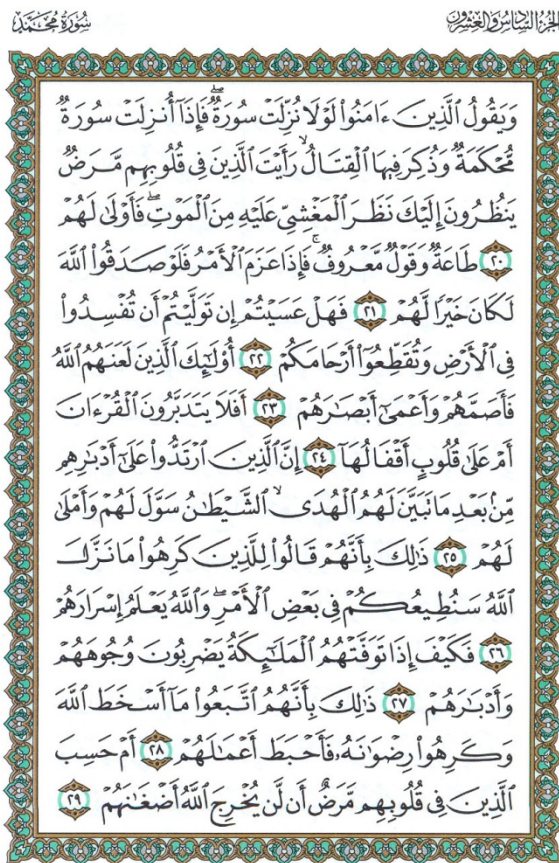 الجزء السادس والعشرون
سورة محمد
وَيَقُولُ ٱلَّذِينَ ءَامَنُواْ لَوْلَا نُزِّلَتْ سُورَةٌۖ فَإِذَآ أُنزِلَتْ سُورَةٌ
مُّحْكَمَةٌ وَذُكِرَ فِيهَا ٱلْقِتَالُۙ رَأَيْتَ ٱلَّذِينَ فِى قُلُوبِهِم مَّرَضٌ
يَنظُرُونَ إِلَيْكَ نَظَرَ ٱلْمَغْشِىِّ عَلَيْهِ مِنَ ٱلْمَوْتِۖ فَأَوْلَىٰ لَهُمْ
٢٠ طَاعَةٌ وَقَوْلٌ مَّعْرُوفٌۚ فَإِذَا عَزَمَ ٱلْأَمْرُ فَلَوْ صَدَقُواْ ٱللَّهَ
لَكَانَ خَيْرًا لَّهُمْ ٢١ فَهَلْ عَسَيْتُمْ إِن تَوَلَّيْتُمْ أَن تُفْسِدُواْ
فِى ٱلْأَرْضِ وَتُقَطِّعُوٓاْ أَرْحَامَكُمْ ٢٢ أُوْلَٰٓئِكَ ٱلَّذِينَ لَعَنَهُمُ ٱللَّهُ
فَأَصَمَّهُمْ وَأَعْمَىٰٓ أَبْصَٰرَهُمْ ٢٣ أَفَلَا يَتَدَبَّرُونَ ٱلْقُرْءَانَ
أَمْ عَلَىٰ قُلُوبٍ أَقْفَالُهَآ ٢٤ إِنَّ ٱلَّذِينَ ٱرْتَدُّواْ عَلَىٰٓ أَدْبَٰرِهِم
مِّنۢ بَعْدِ مَا تَبَيَّنَ لَهُمُ ٱلْهُدَىۙ ٱلشَّيْطَٰنُ سَوَّلَ لَهُمْ وَأَمْلَىٰ
لَهُمْ ٢٥ ذَٰلِكَ بِأَنَّهُمْ قَالُواْ لِلَّذِينَ كَرِهُواْ مَا نَزَّلَ
ٱللَّهُ سَنُطِيعُكُمْ فِى بَعْضِ ٱلْأَمْرِۖ وَٱللَّهُ يَعْلَمُ إِسْرَارَهُمْ
٢٦ فَكَيْفَ إِذَا تَوَفَّتْهُمُ ٱلْمَلَٰٓئِكَةُ يَضْرِبُونَ وُجُوهَهُمْ
وَأَدْبَٰرَهُمْ ٢٧ ذَٰلِكَ بِأَنَّهُمُ ٱتَّبَعُواْ مَآ أَسْخَطَ ٱللَّهَ
وَكَرِهُواْ رِضْوَٰنَهُۥ فَأَحْبَطَ أَعْمَٰلَهُمْ ٢٨ أَمْ حَسِبَ
ٱلَّذِينَ فِى قُلُوبِهِم مَّرَضٌ أَن لَّن يُخْرِجَ ٱللَّهُ أَضْغَٰنَهُمْ ٢٩